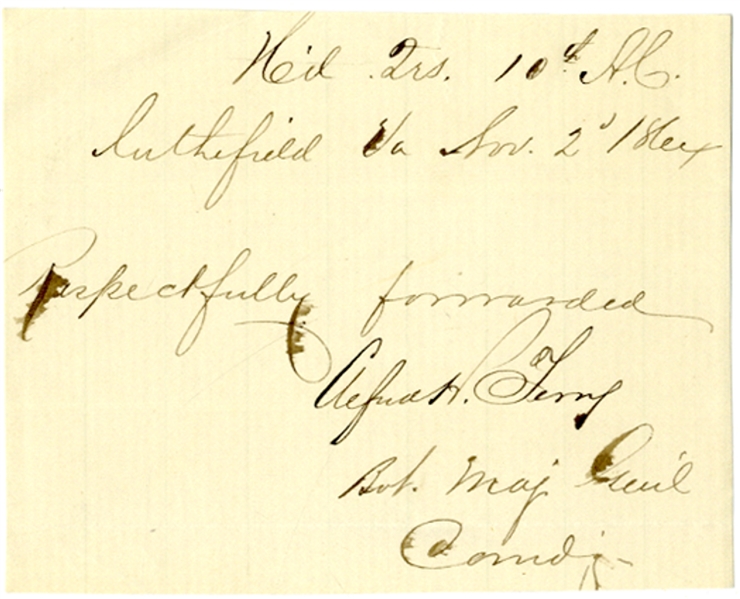 Hd. Qrs. 10th A.C.
In the field Va Nov. 2d 1864
Respectfully forwarded
Alfred H. Terry
Bvt. Maj Genl
Comdg